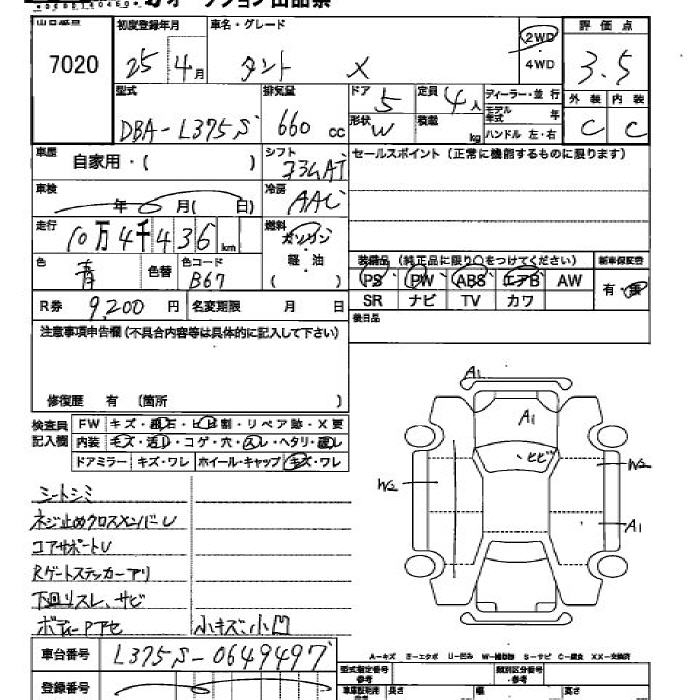 オークション出品票
出品番号 初度登録年月 車名・グレード 評価点
7020 25年4月 タント X 2WD 4WD 3.5
型式 排気量 ドア 5 定員 4人 ディーラー・並行 外装 内装
DBA-L375S 660cc 形状 W 積載 kg モデル年式 年 C C
ハンドル 左・右
車歴 自家用・( ) シフト コラムAT セールスポイント(正常に機能するものに限ります)
車検 年 月( 日) 冷房 AAC
走行 10万4千436km 燃料 ガソリン 軽・油
色 青 色替 色コード B67
装備品(純正品に限り○をつけてください) 新車保証書
PS PW ABS エアB AW 有・無
SR ナビ TV カワ
R券 9,200円 名変期限 月 日 後日品
注意事項申告欄(不具合内容等は具体的に記入して下さい)
修復歴 有 (箇所 )
検査員記入欄 FW キズ・飛石・ヒビ割・リペア跡・X要
内装 キズ・汚れ・コゲ・穴・スレ・ヘタリ・破レ
ドアミラー キズ・ワレ ホイール・キャップ キズ・ワレ
シートシミ
ネジ止めクロスメンバーU
コアサポートU
Rゲートステッカーアリ
下廻りスレ、サビ
ボディーアセ 小キズ・小凹
A1
A1
ヒビ
W2 W2
A1
A-キズ E-エクボ U-凹み W-補修跡 S-サビ C-腐食 XX-交換済
車台番号 L375S-0649497
型式指定番号 参考 類別区分番号 参考
登録番号 長さ 幅 高さ